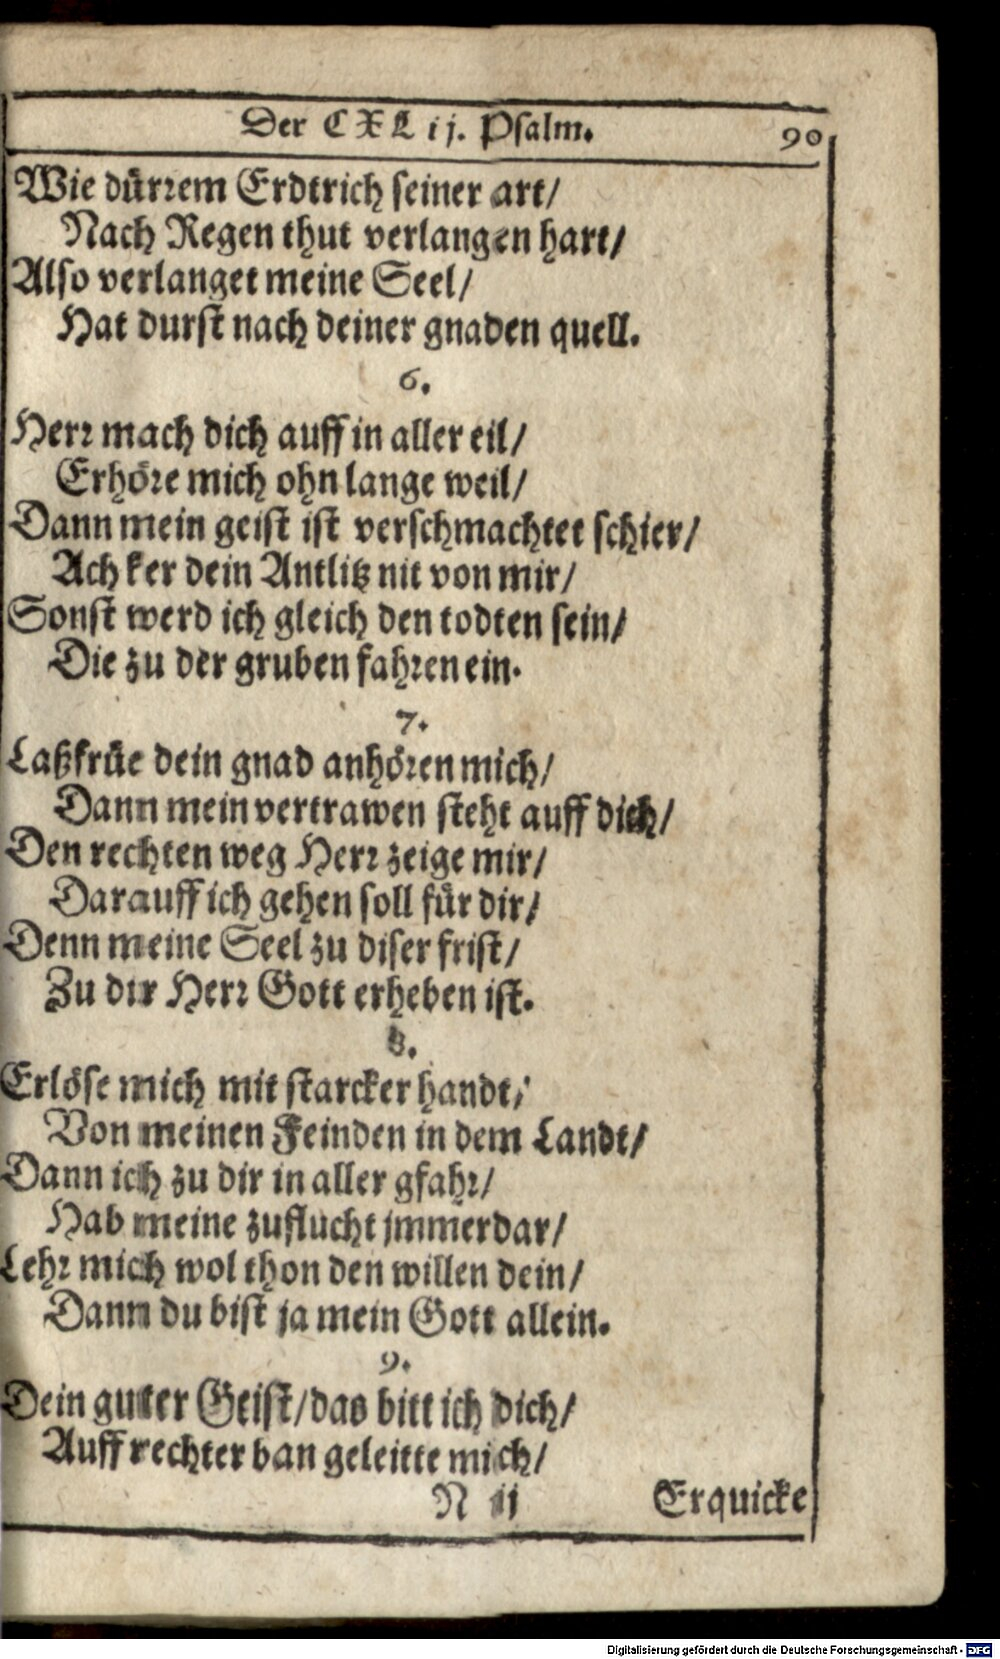 Der CXLij. Psalm. 90
Wie dürrem Erdtrich seiner art/
Nach Regen thut verlangen hart/
Also verlanget meine Seel/
Hat durst nach deiner gnaden quell.
6.
Herr mach dich auff in aller eil/
Erhöre mich ohn lange weil/
Dann mein geist ist verschmachtet schier/
Ach ker dein Antlitz nit von mir/
Sonst werd ich gleich den todten sein/
Die zu der gruben fahren ein.
7.
Laß früe dein gnad anhören mich/
Dann mein vertrawen steht auff dich/
Den rechten weg Herr zeige mir/
Darauff ich gehen soll für dir/
Denn meine Seel zu diser frist/
Zu dir Herr Gott erheben ist.
8.
Erlöse mich mit starcker handt/
Von meinen Feinden in dem Landt/
Dann ich zu dir in aller gfahr/
Hab meine zuflucht jmmerdar/
Lehr mich wol thon den willen dein/
Dann du bist ja mein Gott allein.
9.
Dein guter Geist/das bitt ich dich/
Auff rechter ban geleitte mich/
N ij Erquicke
Digitalisierung gefördert durch die Deutsche Forschungsgemeinschaft - DFG